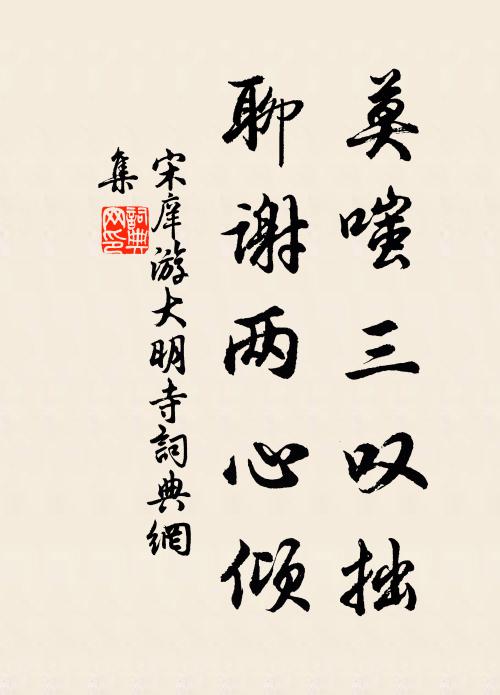 莫嗤三叹拙
聊谢两心倾
宋庠游大明寺詞典網
集
詞典网印